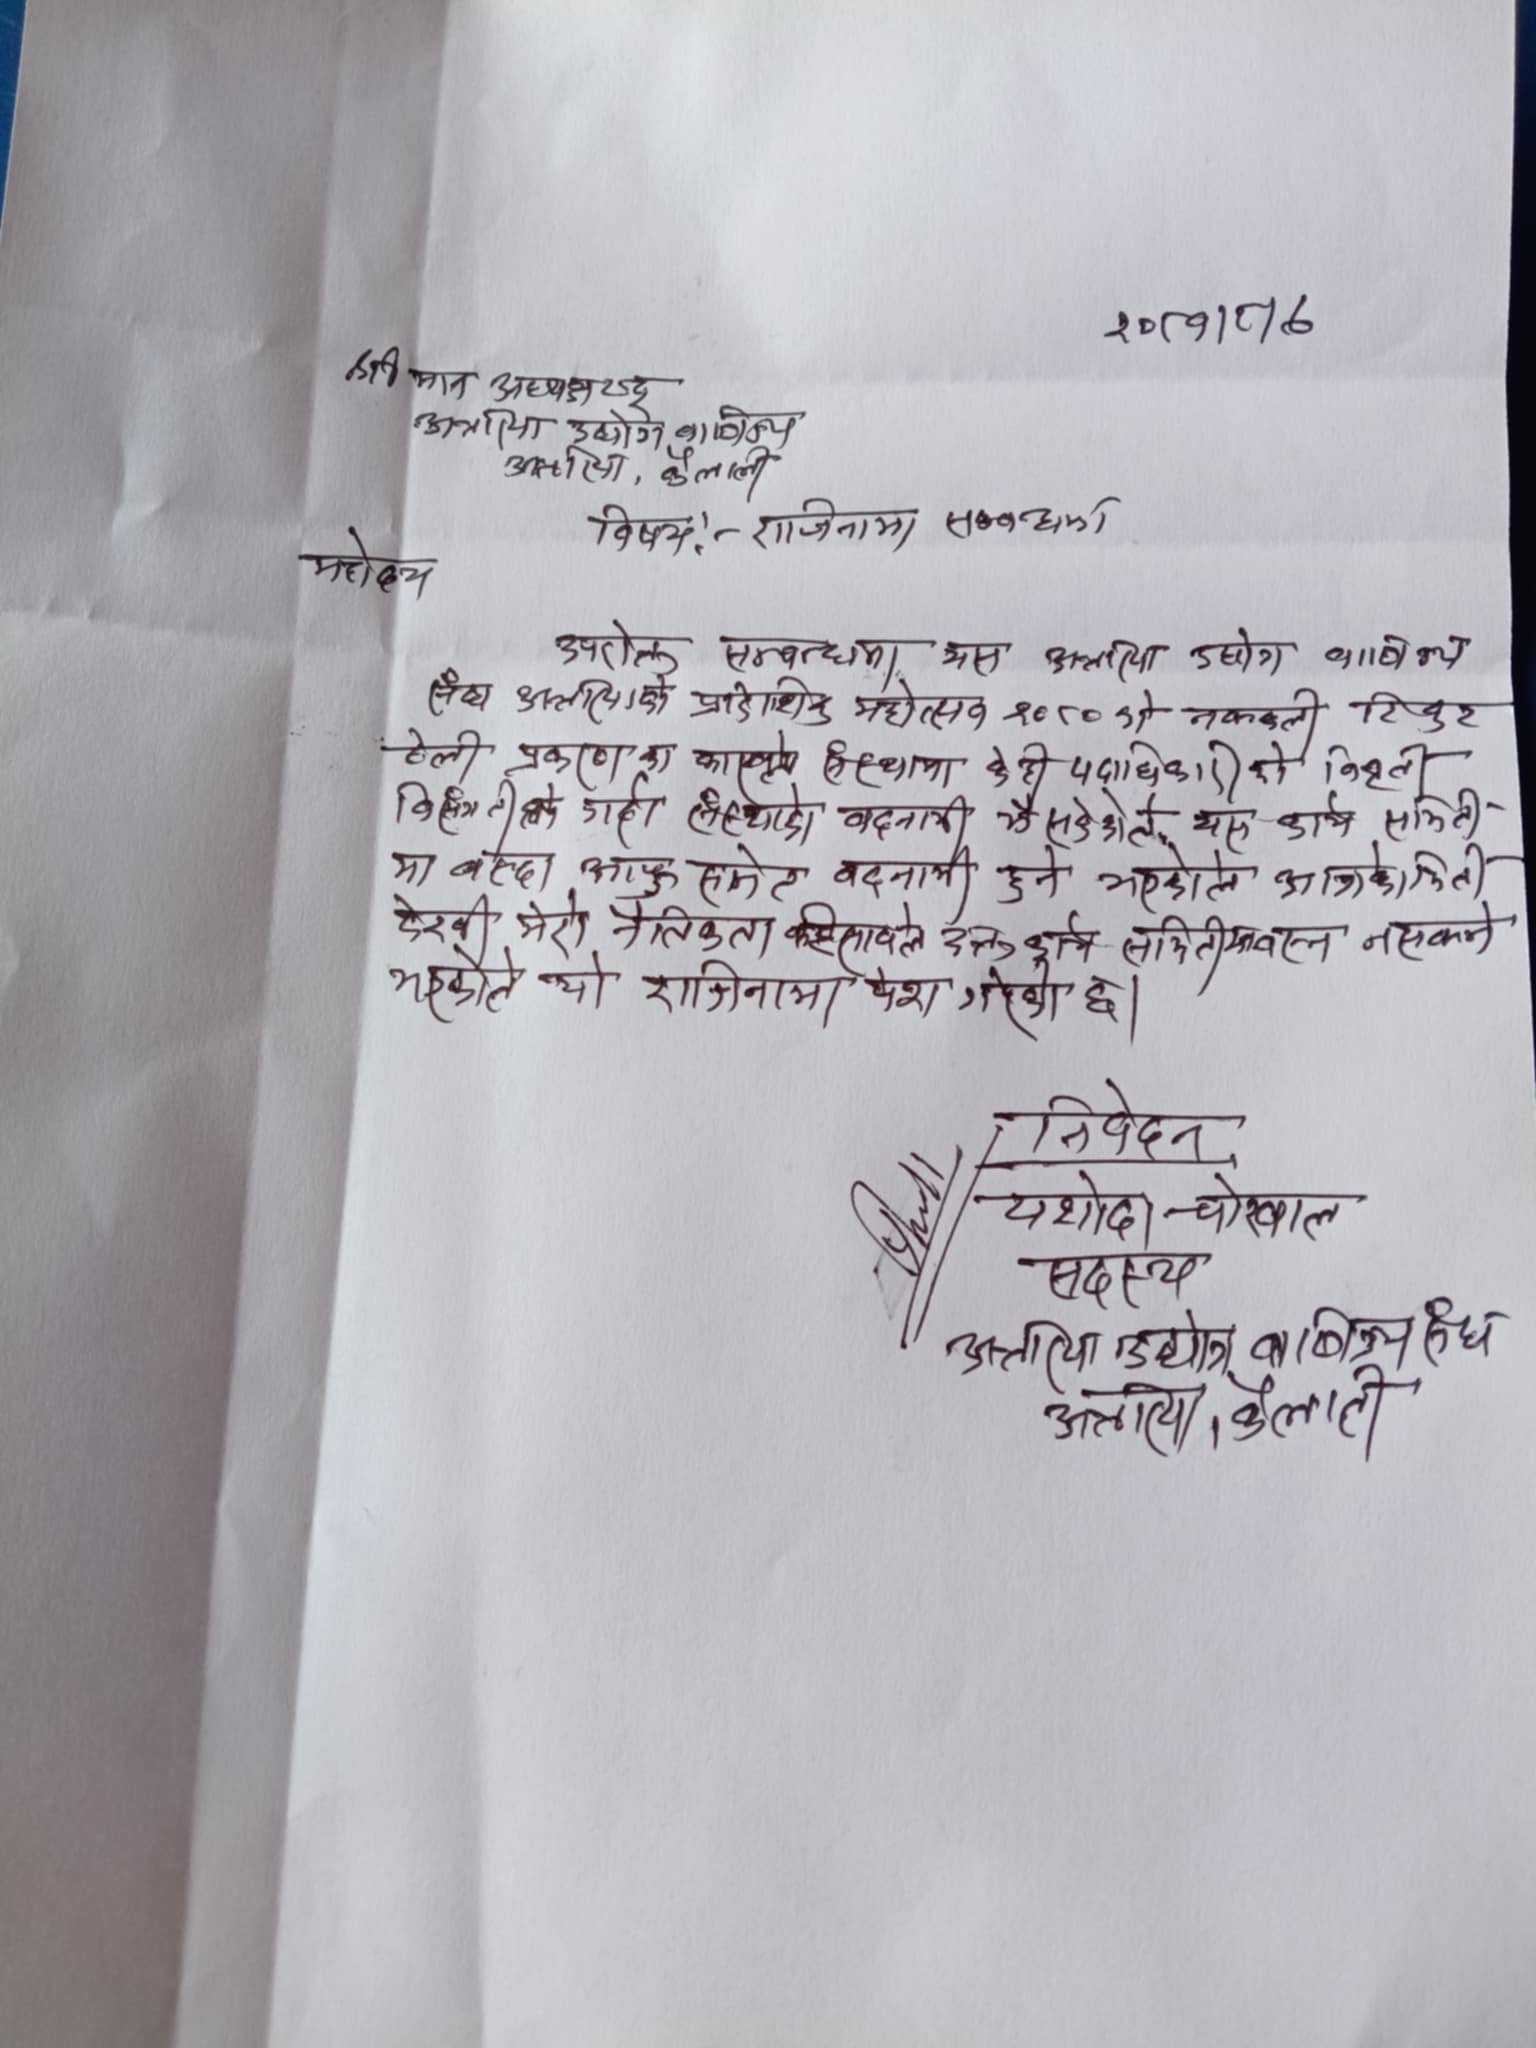 २०८१।८।६
श्रीमान अध्यक्षज्यू
अत्तरिया उद्योग वाणिज्य
अत्तरिया, कैलाली
विषय:- राजिनामा सम्बन्धमा
महोदय
उपरोक्त सम्बन्धमा यस अत्तरिया उद्योग वाणिज्य
संघ अत्तरियाको प्रादेशिक महोत्सव २०८० को नक्कली टिकट
ठेली प्रकरण का कारणले संस्थामा केही पदाधिकारीको विकृती
विसंगतीले गर्दा संस्थाको वदनामी भै सकेकोले यस कार्य समिती
मा वस्दा आफु समेत वदनामी हुने भएकोले आजको मिती
देखी मेरो नैतिकता हिसावले उक्त कार्य समितीमा वस्न नसक्ने
भएकोले यो राजिनामा पेश गरेको छु।
निवेदन
यशोदा चोखाल
सदस्य
अत्तरिया उद्योग वाणिज्य संघ
अत्तरिया, कैलाली